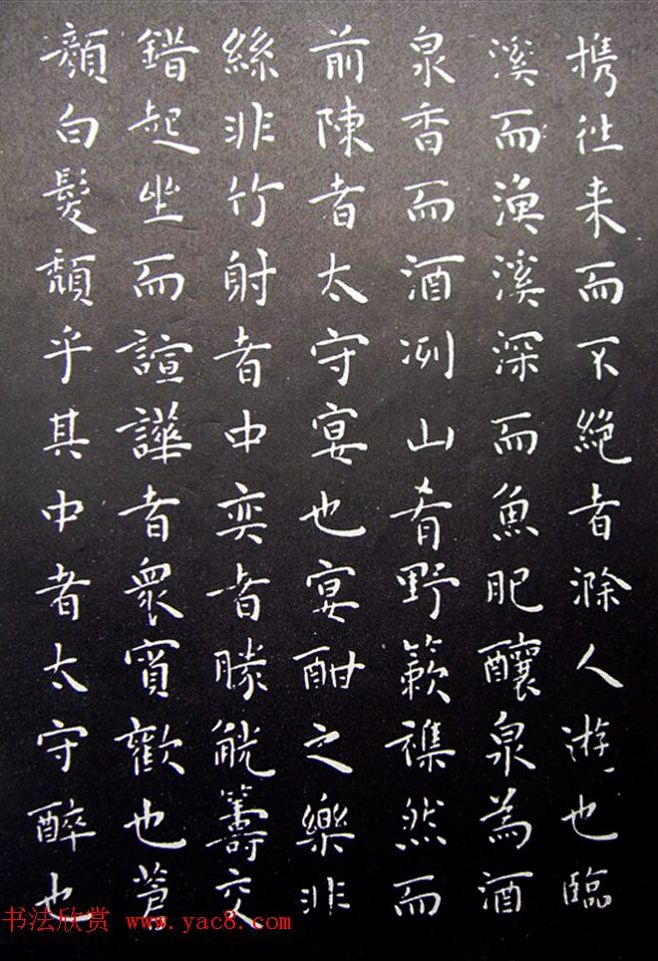 携往来而不絶者滁人游也臨
溪而漁溪深而魚肥釀泉為酒
泉香而酒冽山肴野簌襍然而
前陳者太守宴也宴酣之樂非
絲非竹射者中奕者勝觥籌交
錯起坐而諠譁者衆賓歡也蒼
顏白髮頽乎其中者太守醉也
书法欣赏 www.yac8.com